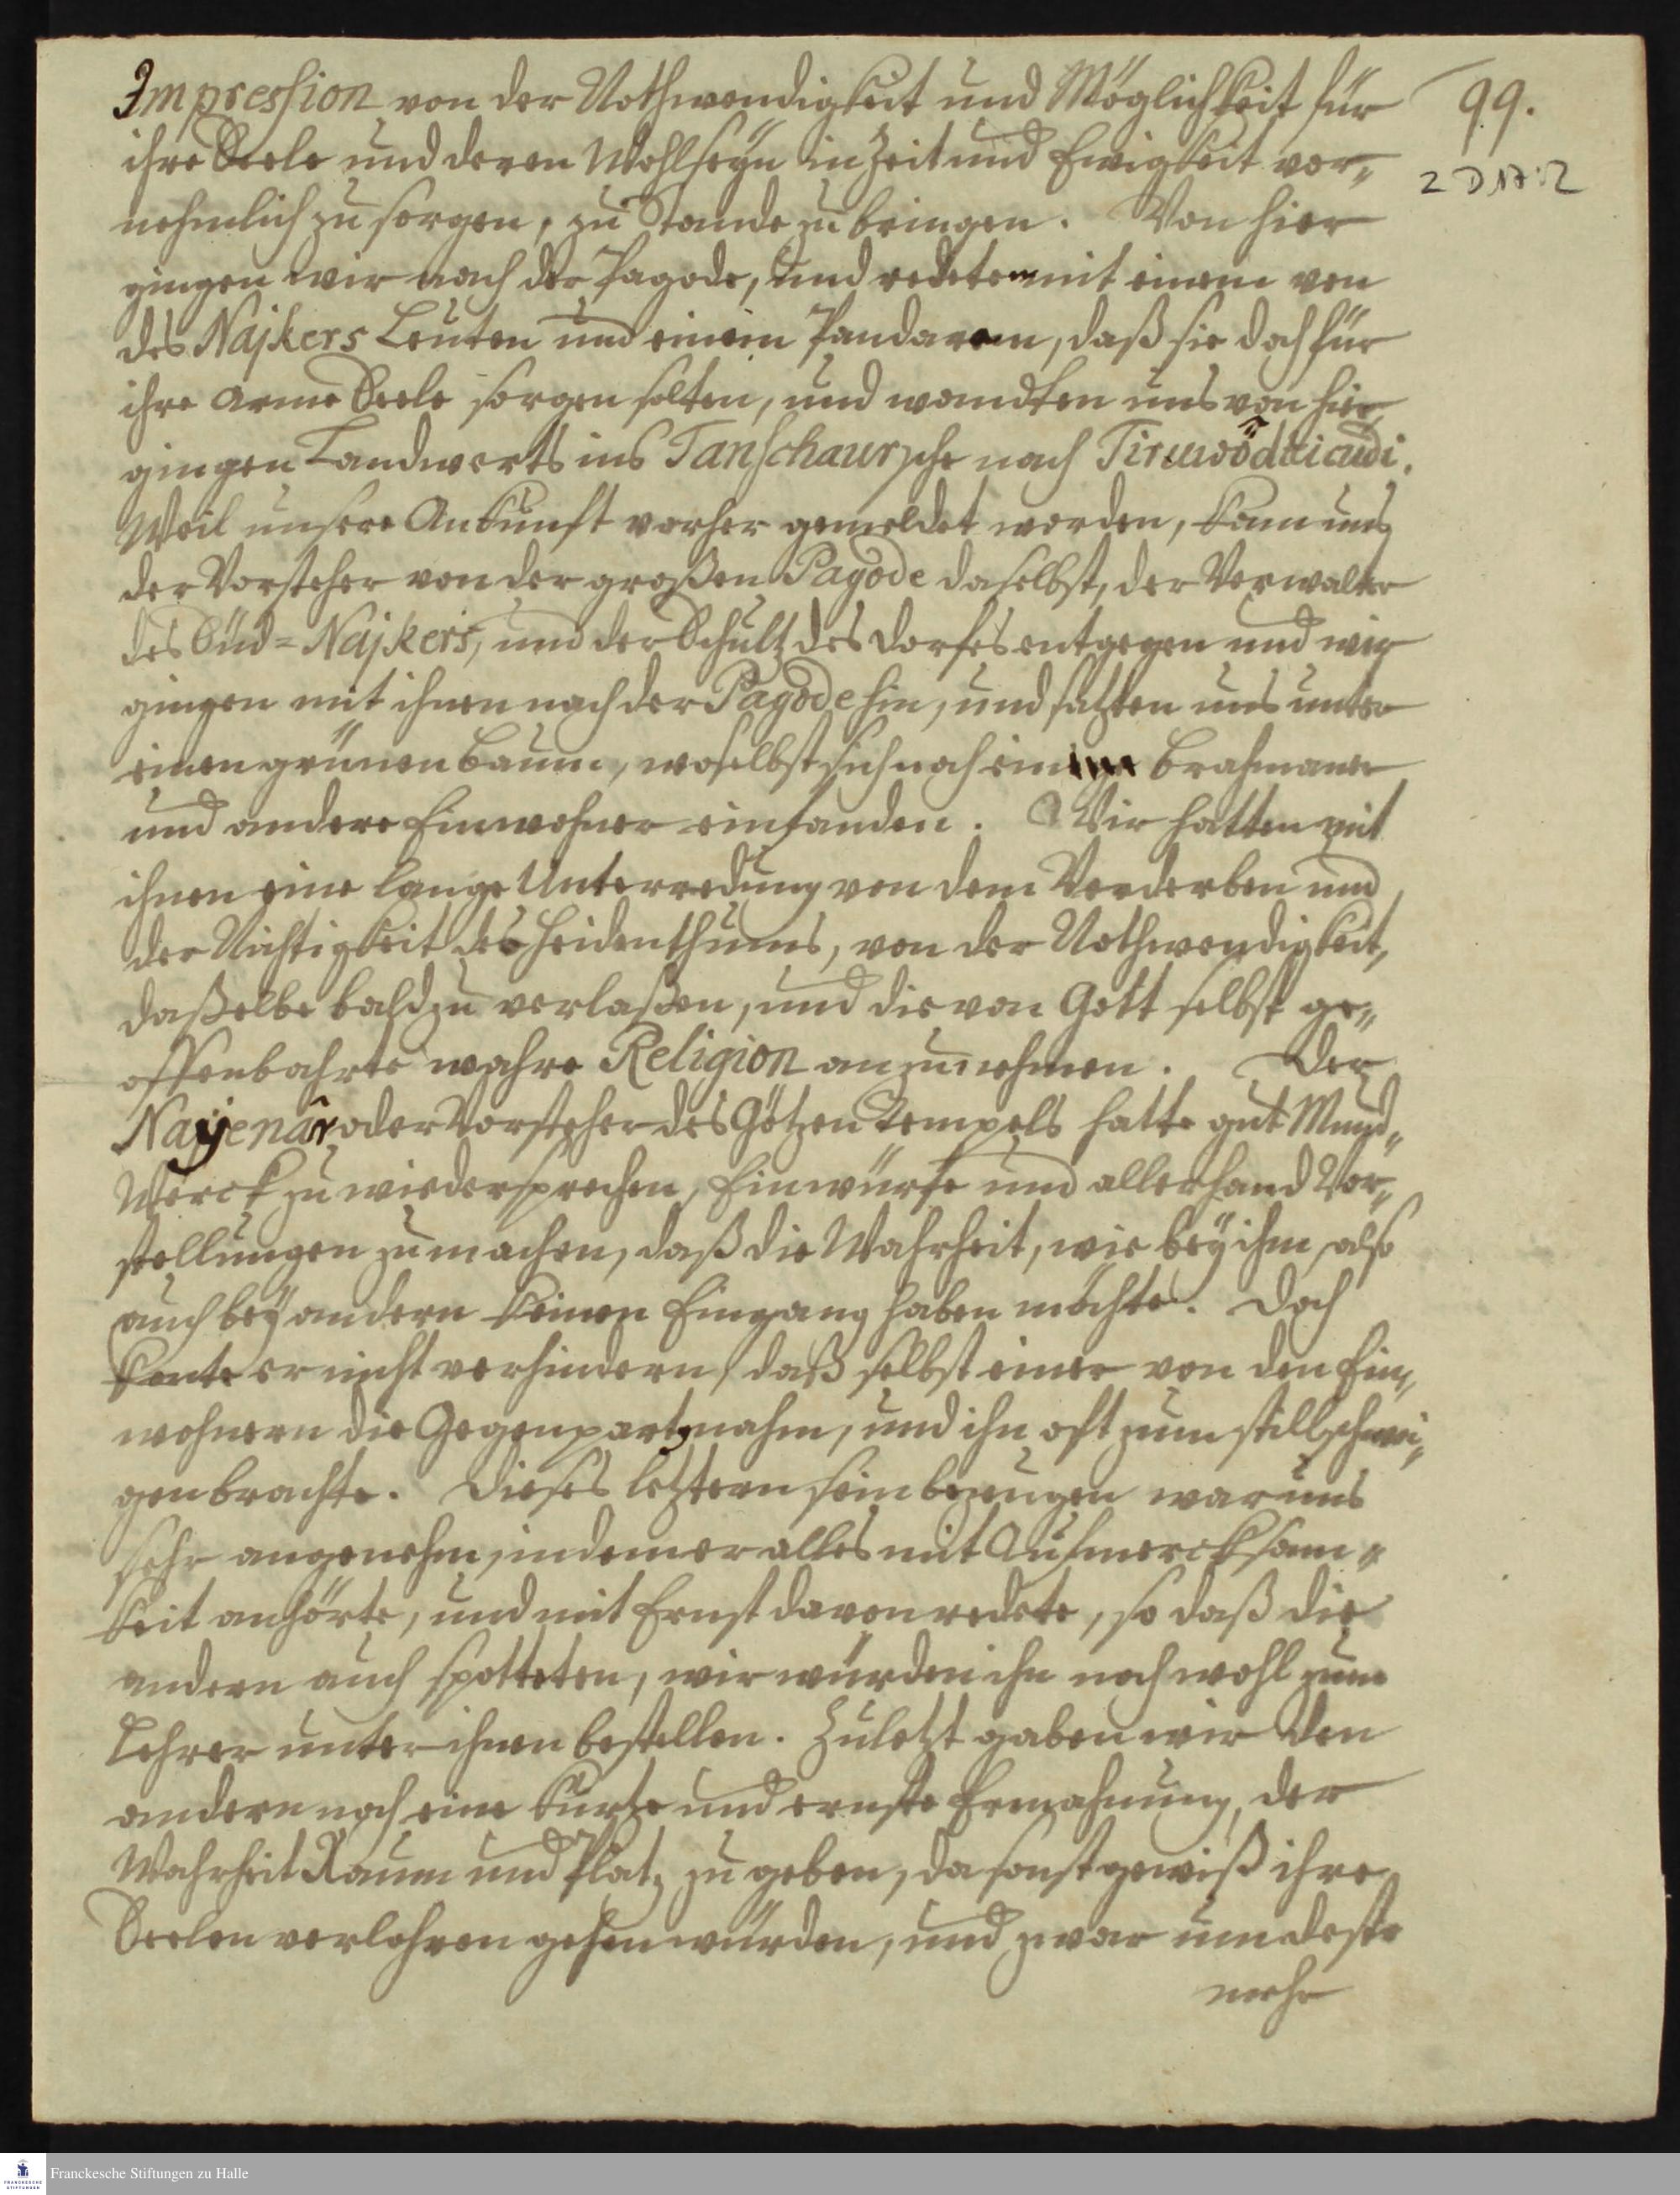 Impression von der Nothwendigkeit und Möglichkeit für
99.
ihre Seele und deren Wohlseyn in Zeit und Ewigkeit vor„
2 D 17:12
nehmlich zu sorgen, zu Stande zu bringen. Von hier
gingen wir nach der Pagode, und redeten mit einem von
des Najkers Leuten und einem Pandaram, daß sie doch für
ihre arme Seele sorgen solten, und wandten uns von hier
gingen Landwerts ins Tanschaursche nach Tiruwödticudi.
Weil unsere Ankunft vorher gemeldet worden, kam uns
der Vorsteher von der großen Pagode daselbst, der Verwalter
des Süd=Najkers, und der Schultz des Dorfes entgegen und wir
gingen mit ihnen nach der Pagode hin, und satzten uns unter
einen grünen Baum, woselbst sich noch einige Brahmaner
und andere Einwohner einfanden. Wir hatten mit
ihnen eine lange Unterredung von dem Verderben und
der Nichtigkeit des Heidenthums, von der Nothwendigkeit,
daßelbe bald zu verlaßen, und die von Gott selbst ge„
offenbahrte wahre Religion anzunehmen. Der
Nayenâr oder Vorsteher des Götzen Tempels hatte gut Mund„
Werck zu wiedersprechen, Einwürfe und allerhand Vor„
stellungen zu machen, daß die Wahrheit, wie bey ihm, also
auch bey andern keinen Eingang haben möchte. Doch
konte er nicht verhindern, daß selbst einer von den Ein„
wohnern die Gegenparth nahm, und ihn oft zum stillschwei„
gen brachte. Dieses letztern sein bezeugen war uns
sehr angenehm, indem er alles mit Aufmercksam„
keit anhörte, und mit Ernst davon redete, so daß die
andern auch spotteten, wir würden ihn noch wohl zum
Lehrer unter ihnen bestellen. Zuletzt gaben wir den
andern noch eine kurtze und ernste Ermahnung, der
Wahrheit Raum und Platz zu geben, da sonst gewiß ihre
Seelen verlohren gehen würden, und zwar um desto
mehr
Franckesche Stiftungen zu Halle